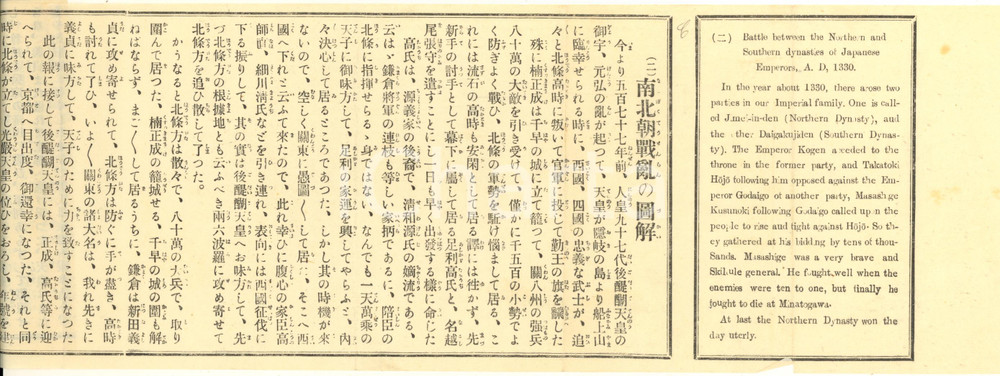 8
(二) Battle between the Northen and
Southern dynasties of Japanese
Emperors, A. D, 1330.
In the year about 1330, there arose two
parties in our Imperial family. One is call-
ed J.meI-inden (Northern Dynasty), and
the other Daigakujiden (Southern Dynas-
ty). The Emperor Kogen acceded to the
throne in the former party, and Takatoki
Hōjō following him opposed against the Em-
peror Godaigo of another party, Masashige
Kusunoki following Godaigo called upon the
people to rise and fight against Hōjō· So they
gathered at his bidding by tens of thou-
sands. Masashige was a very brave and
Skilfule general. He fought well when the
enemies were ten to one, but finally he
fought to die at Minatogawa.
At last the Northern Dynasty won the
day uterly.
(二) 南北朝戰亂の圖解
今より五百七十七年前、人皇九十七代後醍醐天皇の
御宇、元弘の亂が起つて、天皇が隱岐の島より船上山
に臨幸せられる時に、西國、四國の忠義な武士が、追
々と北條高時に叛いて官軍に投じて勤王の旗を飜した
殊に楠正成は千早の城に立て籠つて、關八州の强兵
八十萬の大敵を引き受けて、僅かに千五百の小勢でよ
く防ぎよく戰ひ、北條の軍勢を駈け惱まして居る、こ
れには流石の高時も安閑として居る譯には徃かず、先
新手の討手として幕下に屬して居る足利高氏と、名越
尾張守を遣すことにし一日も早く出發する樣に命じた
高氏は、源義家の後裔で、淸和源氏の嫡流である、
云はゞ鎌倉將軍の連枝も等しい家柄であるに、陪臣の
北條に指揮せらるゝ身ではない、なんでも一天萬乘の
天子に御味方して、足利の家運を興してやらふと、内
々決心して居るところであつた、しかし其の時機が來
ないので、空しく關東に愚圖〱して居た、そこへ西
國へ下れと云ふて來たので、此れ幸ひに腹心の家臣高
師直、細川淸氏などを引き連れ、表向には西國征伐に
下る振りして、其の實は後醍醐天皇へお味方して、先
づ北條方の根據地とも云ふべき兩六波羅に攻め寄せて
北條方を追ひ散して了つた。
かうなると北條方は散々で、八十萬の大兵で、取り
圍んで居つた、楠正成の籠城せる、千早の城の圍も解
ねばならず、まご〱して居るうちに、鎌倉は新田義
貞に攻め寄せられて、北條方は防ぐに手が盡き、高時
も討れて了ひ、いよ〱關東の諸大名は、我れ先きに
義貞に味方して、天子のために力を致すことになつた
此の報に接して後醍醐天皇には、正成、高氏等に迎
へられて、京都へ目出度、御還幸になつた、それと同
時に北條が立てし光嚴天皇の位ひをおろし、年號を建